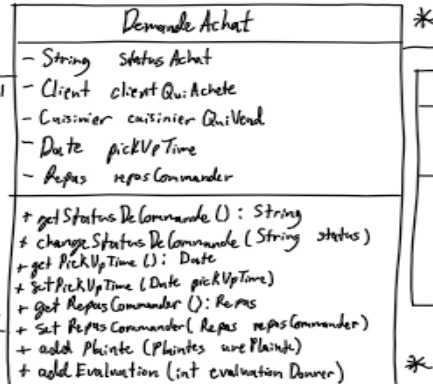 Demande Achat
*
- String status Achat
1
- Client client Qui Achete
- Cuisinier cuisinier QuiVend
- Date pickUpTime
- Repas repas Commander
+ get Status De Commande () : String
+ change Status De Commande ( String status )
+ get PickUpTime () : Date
+ set PickUpTime ( Date pickUpTime )
+ get Repas Commander () : Repas
+ set Repas Commander ( Repas repas Commander )
+ add Plainte ( Plaintes unePlainte )
+ add Evaluation ( int evaluation Donner )
*